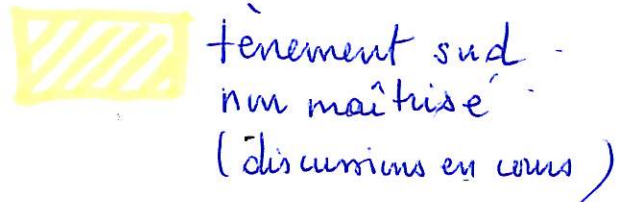 tènement sud
non maîtrisé
(discussions en cours)